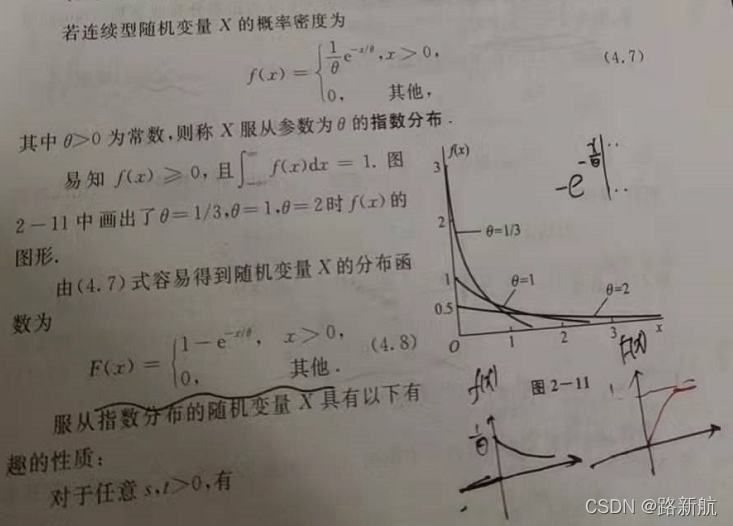 若连续型随机变量 X 的概率密度为
f(x) = { 1/θ e^{-x/θ}, x > 0,
0, 其他,
(4.7)
其中 θ>0 为常数,则称 X 服从参数为 θ 的指数分布.
易知 f(x) ⩾ 0, 且∫_{-∞}^{∞} f(x)dx = 1. 图
2-11 中画出了 θ = 1/3, θ = 1, θ = 2 时 f(x) 的
图形.
由(4.7)式容易得到随机变量 X 的分布函
数为
F(x) = { 1 - e^{-x/θ}, x > 0,
0, 其他.
(4.8)
服从指数分布的随机变量 X 具有以下有
趣的性质:
对于任意 s,t>0, 有
f(x)
3
2
1
0.5
O
1
2
3
x
θ=1/3
θ=1
θ=2
图 2-11
-e^{-x/θ} |
f(x)
1/θ
F(x)
1
CSDN @路新航